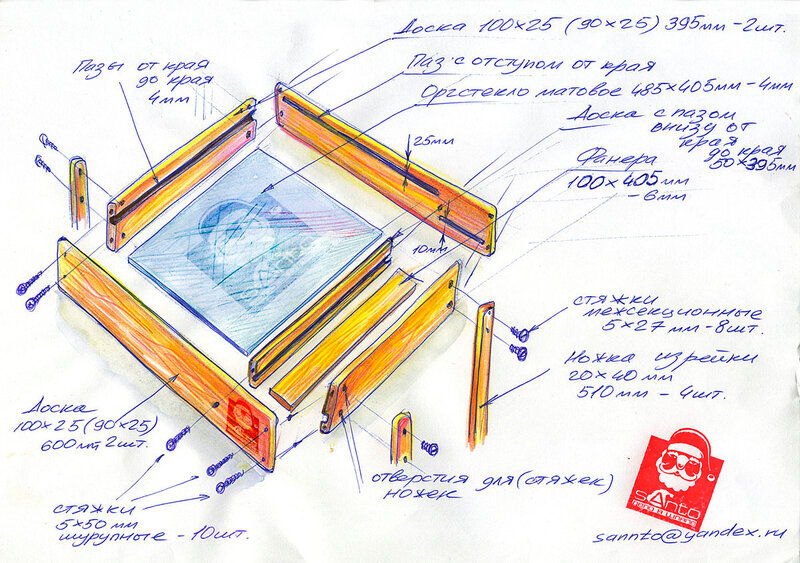 Доска 100×25 (90×25) 395мм - 2шт.
Паз с отступом от края
Оргстекло матовое 485×405мм - 4мм
Доска с пазом
внизу от
края
до края
50×395мм
Фанера
100×405мм
- 6мм
Пазы от края
до края
4мм
25мм
10мм
стяжки
межсекционные
5×27мм - 8шт.
Ножка из рейки
20×40мм
510мм - 4шт.
Доска
100×25 (90×25)
600мм 2шт.
отверстия для (стяжек)
ножек
стяжки
5×50мм
шурупные - 10шт.
sAnto
sannto@yandex.ru